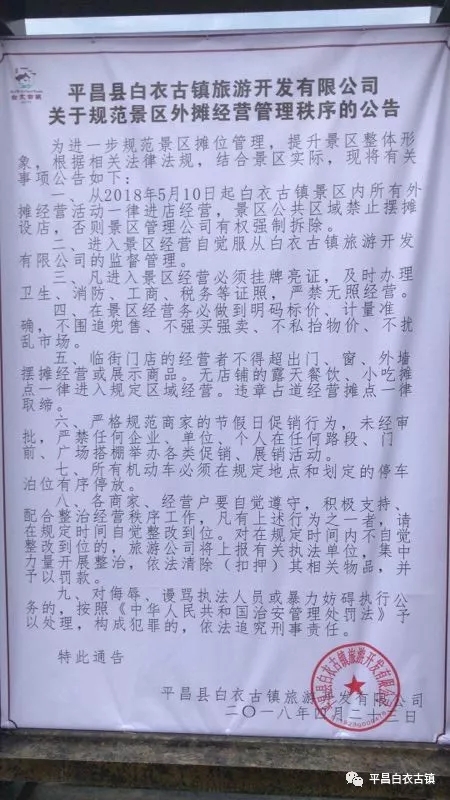 白衣古镇
平昌县白衣古镇旅游开发有限公司
关于规范景区外摊经营管理秩序的公告
为进一步规范景区摊位管理，提升景区整体形
象，根据相关法律法规，结合景区实际，现将有关
事项公告如下：
一、从2018年5月10日起白衣古镇景区内所有外
摊经营活动一律进店经营，景区公共区域禁止摆摊
设店，否则景区管理公司有权强制拆除。
二、进入景区经营自觉服从白衣古镇旅游开发
有限公司的监督管理。
三、凡进入景区经营必须挂牌亮证，及时办理
卫生、消防、工商、税务等证照，严禁无照经营。
四、在景区经营务必做到明码标价、计量准
确，不围追兜售、不强买强卖、不私抬物价、不扰
乱市场。
五、临街门店的经营者不得超出门、窗、外墙
摆摊经营或展示商品。无店铺的露天餐饮、小吃摊
点一律进入规定区域经营。违章占道经营摊点一律
取缔。
六、严格规范商家的节假日促销行为，未经审
批，严禁任何企业、单位、个人在任何路段、门
前、广场搭棚举办各类促销、展销活动。
七、所有机动车必须在规定地点和划定的停车
泊位有序停放。
八、各商家、经营户要自觉遵守，积极支持、
配合整治经营秩序工作，凡有上述行为之一者，请
在规定时间自觉整改到位。对在规定时间内不自觉
整改到位的，旅游公司将上报有关执法单位，集中
力量开展整治，依法清除（扣押）其相关物品，并
予以罚款。
九、对侮辱、谩骂执法人员或暴力妨碍执行公
务的，按照《中华人民共和国治安管理处罚法》予
以处理，构成犯罪的，依法追究刑事责任。
特此通告
平昌县白衣古镇旅游开发有限公司
二〇一八年四月二十三日
平昌县白衣古镇旅游开发有限公司
平昌白衣古镇